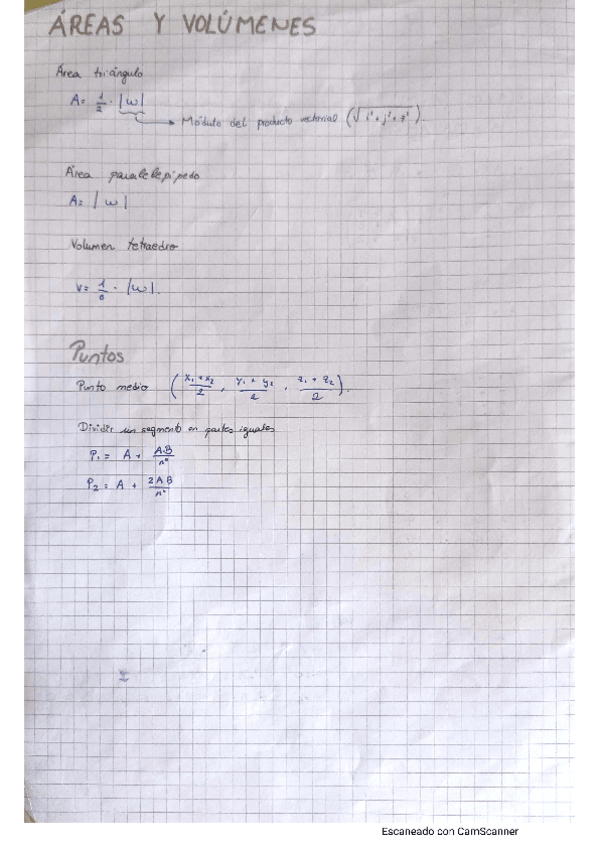 ÁREAS Y VOLÚMENES
Área triángulo
A = 1/2 · |w|
Módulo del producto vectorial (√i²+j²+z²).
Área paralelepípedo
A = |w|
Volumen tetraedro
V = 1/6 · |w|.
Puntos
Punto medio (x₁+x₂/2, y₁+y₂/2, z₁+z₂/2).
Dividir un segmento en partes iguales
P₁ = A + AB/nº
P₂ = A + 2AB/nº
Escaneado con CamScanner